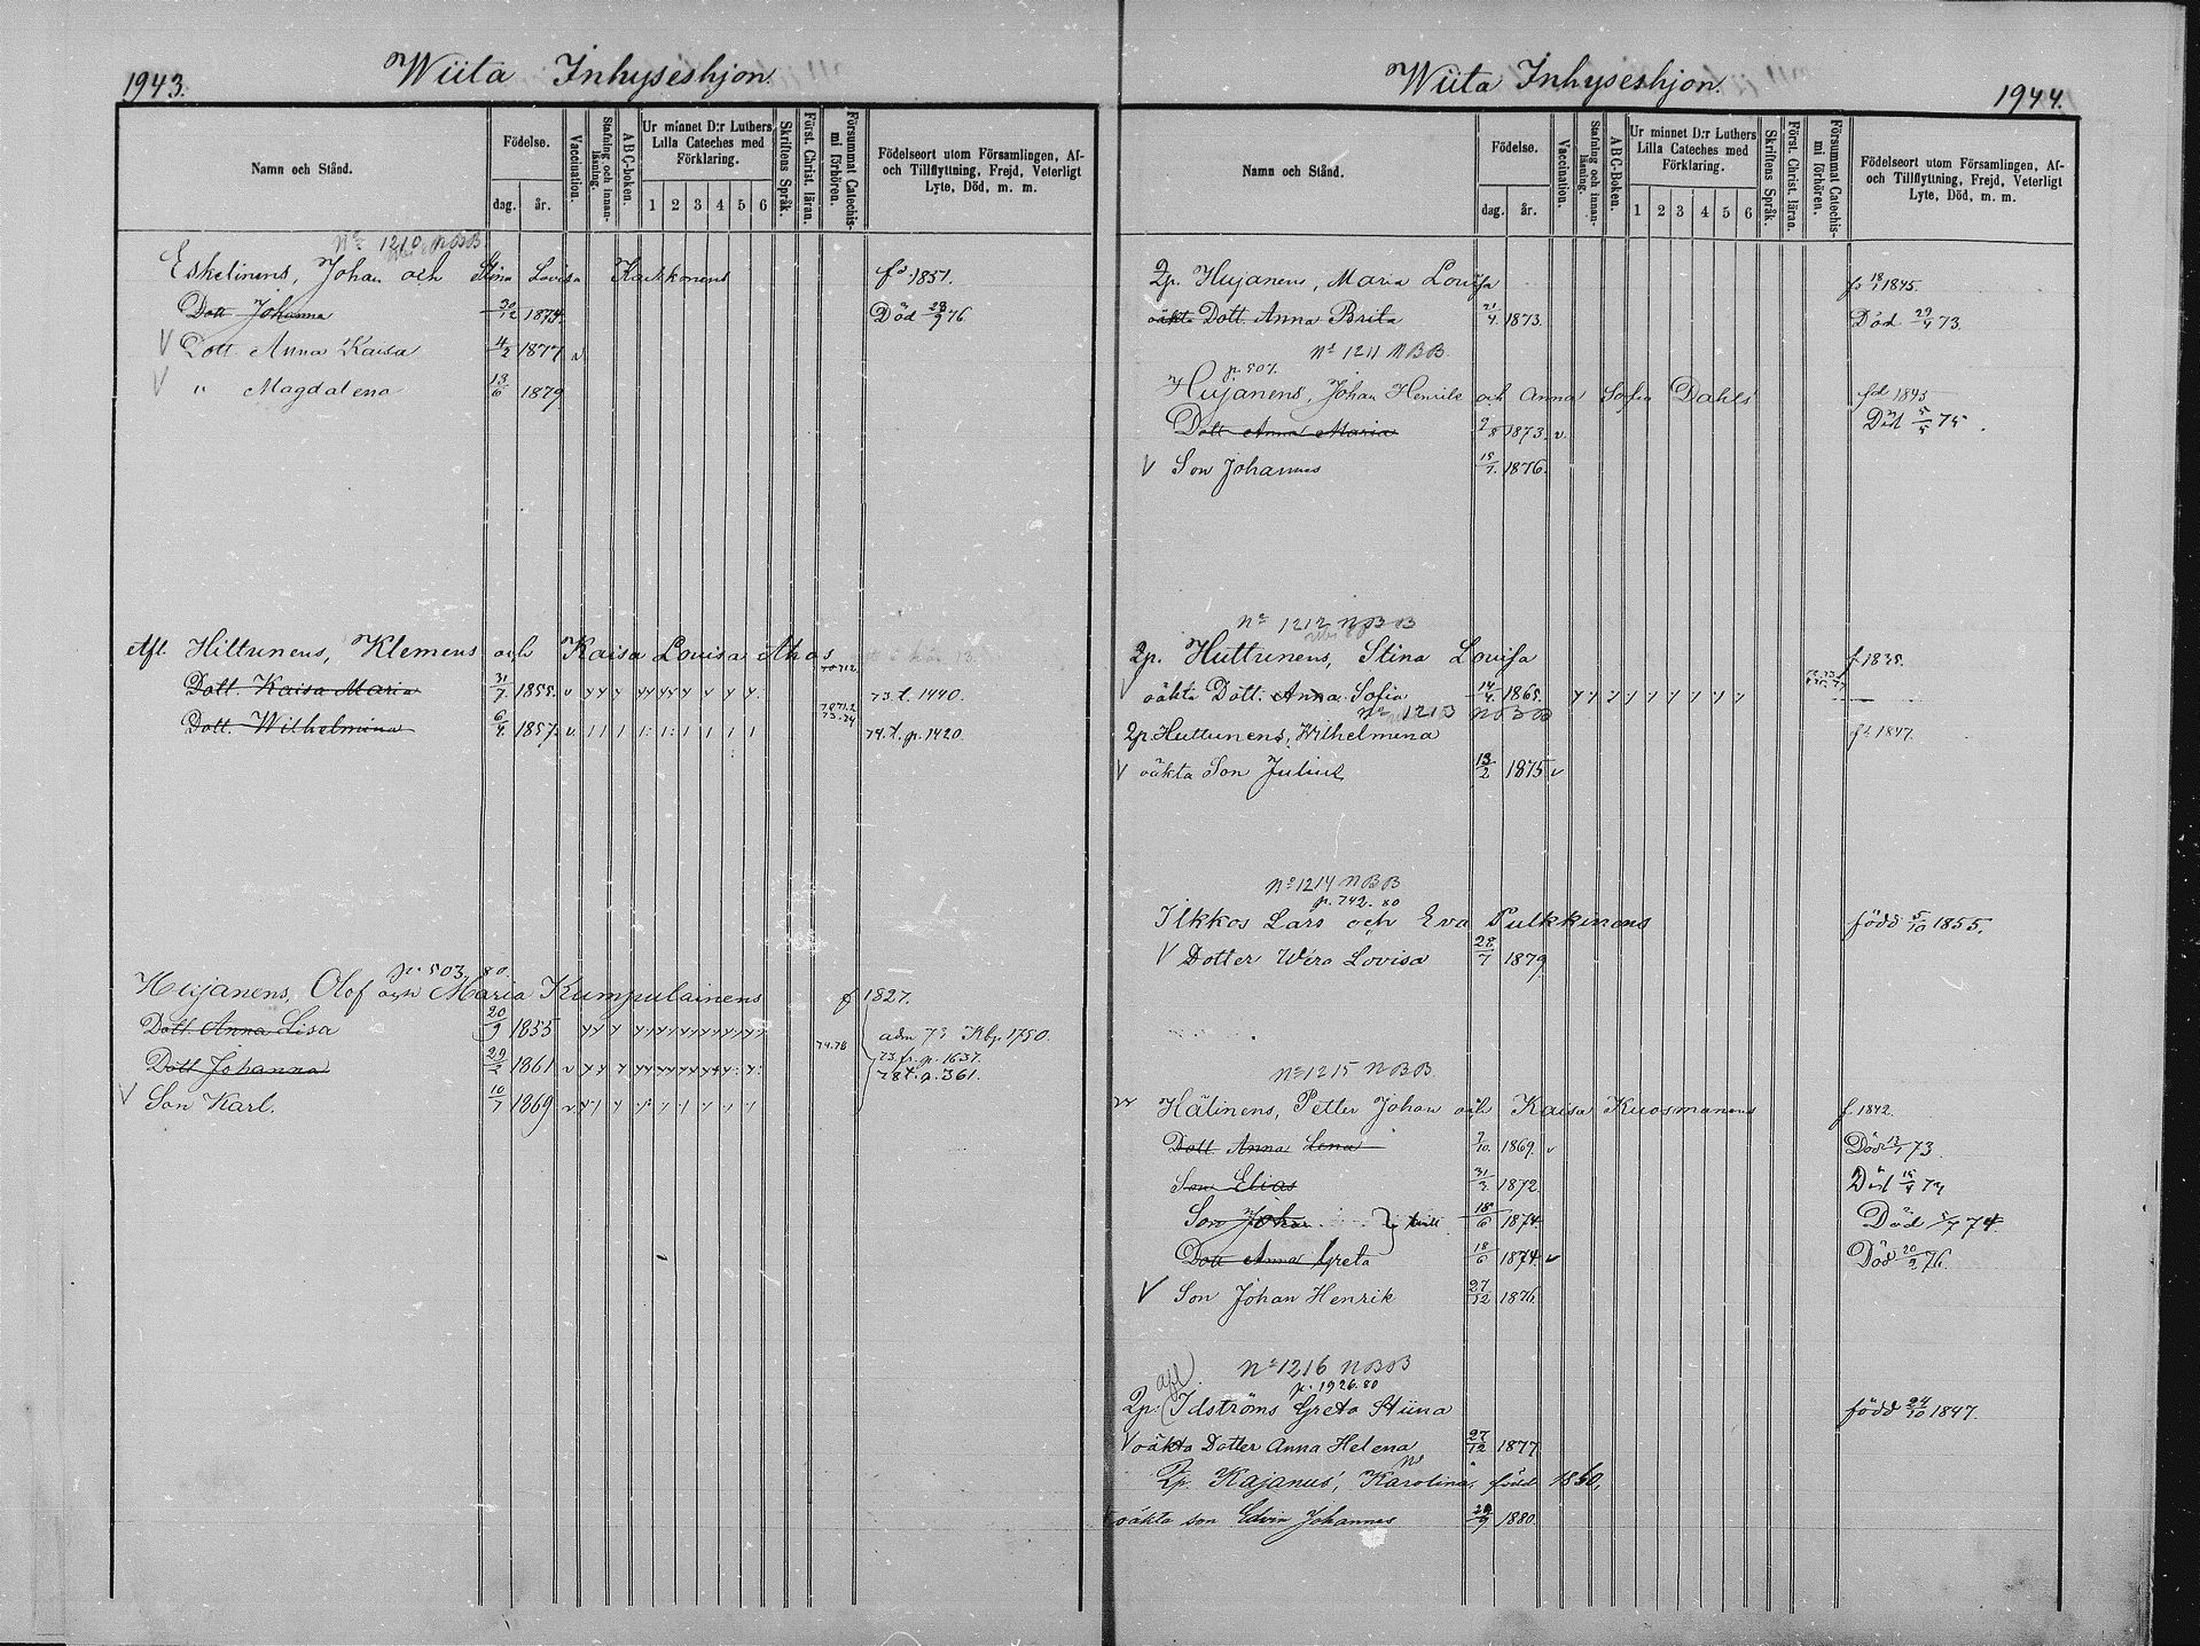 1943.
Wiita Inhyseshjon.
Namn och Stånd.
Födelse.
dag.
år.
Vaccination.
Stafning och innanläsning.
A B C-boken.
Ur minnet D:r Luthers Lilla Cateches med Förklaring.
1 2 3 4 5 6
Skriftens Språk.
Först. Christ. läran.
Försummat Catechismi förhören.
Födelseort utom Församlingen, Af- och Tillflyttning, Frejd, Veterligt Lyte, Död, m. m.
No 1210 NBB
Eskelinens, Johan och Stina Lovisa Karkkonens fd 1851.
Dott Johanna 30/12 1874. Död 28/9 76
V Dott. Anna Kaisa 4/2 1877 v
V " Magdalena 13/6 1879
Afl. Hiltunens, Klemens och Kaisa Lovisa Ahos
Dott Kaisa Maria 31/7 1855. v 73 t. 1440.
Dott. Wilhelmina 6/4 1857. v 74. t. p. 1420.
p. 503. 80.
Hujanens, Olof och Maria Kumpulainens f 1827.
Dott. Anna Lisa 20/9 1855 adm 73 Kbp 1750.
Dott Johanna 29/2 1861 v 74.78 73 fr. p. 1637.
78 t. p. 361.
V Son Karl. 10/7 1869 v
Wiita Inhyseshjon.
1944.
Namn och Stånd.
Födelse.
dag.
år.
Vaccination.
Stafning och innanläsning.
A B C-Boken.
Ur minnet D:r Luthers Lilla Cateches med Förklaring.
1 2 3 4 5 6
Skriftens Språk.
Först. Christ. läran.
Försummat Catechismi förhören.
Födelseort utom Församlingen, Af- och Tillflyttning, Frejd, Veterligt Lyte, Död, m. m.
Qp. Hujanens, Maria Lovisa f. 18/1 1845.
oäkta Dott. Anna Brita 21/4. 1873. Död 29/4 73.
No 1211 NBB.
p. 507.
Hujanens, Johan Henrik och Anna Sofia Dahls fd 1845
Dott Anna Maria 9/8 1873. v. Död 5/5 75.
V Son Johannes 1876.
No 1212 NBB
Qp. Huttunens, Stina Lovisa f 1835.
V oäkta Dott. Anna Sofia 14/4. 1865.
No 1213 NBB
Qp. Huttunens, Wilhelmina f. 1847.
V oäkta Son Julius 13/2 1875 v
No 1214 NBB
p. 742. 80
Ilkkos Lars och Eva Pulkkinens född 5/10 1855.
V Dotter Wera Lovisa 28/7 1879
No 1215 NBB.
Hälinens, Petter Johan och Kaisa Kuosmanens f. 1842.
Dott. Anna Lena 9/10. 1869. v Död 73.
Son Elias 31/3 1872.
Son Johan } tvill. 18/6 1874 Död 74.
Dott Anna Greta 18/6 1874. v Död 20/2 76.
V Son Johan Henrik 27/12 1876.
No 1216 NBB
p. 1926. 80
afl
Qp. Idströms Greta Stiina född 24/10 1847.
V oäkta Dotter Anna Helena 27/12 1877
Qp. Kajanus', Karolina, född 1860,
oäkta son Edvin Johannes 1880.